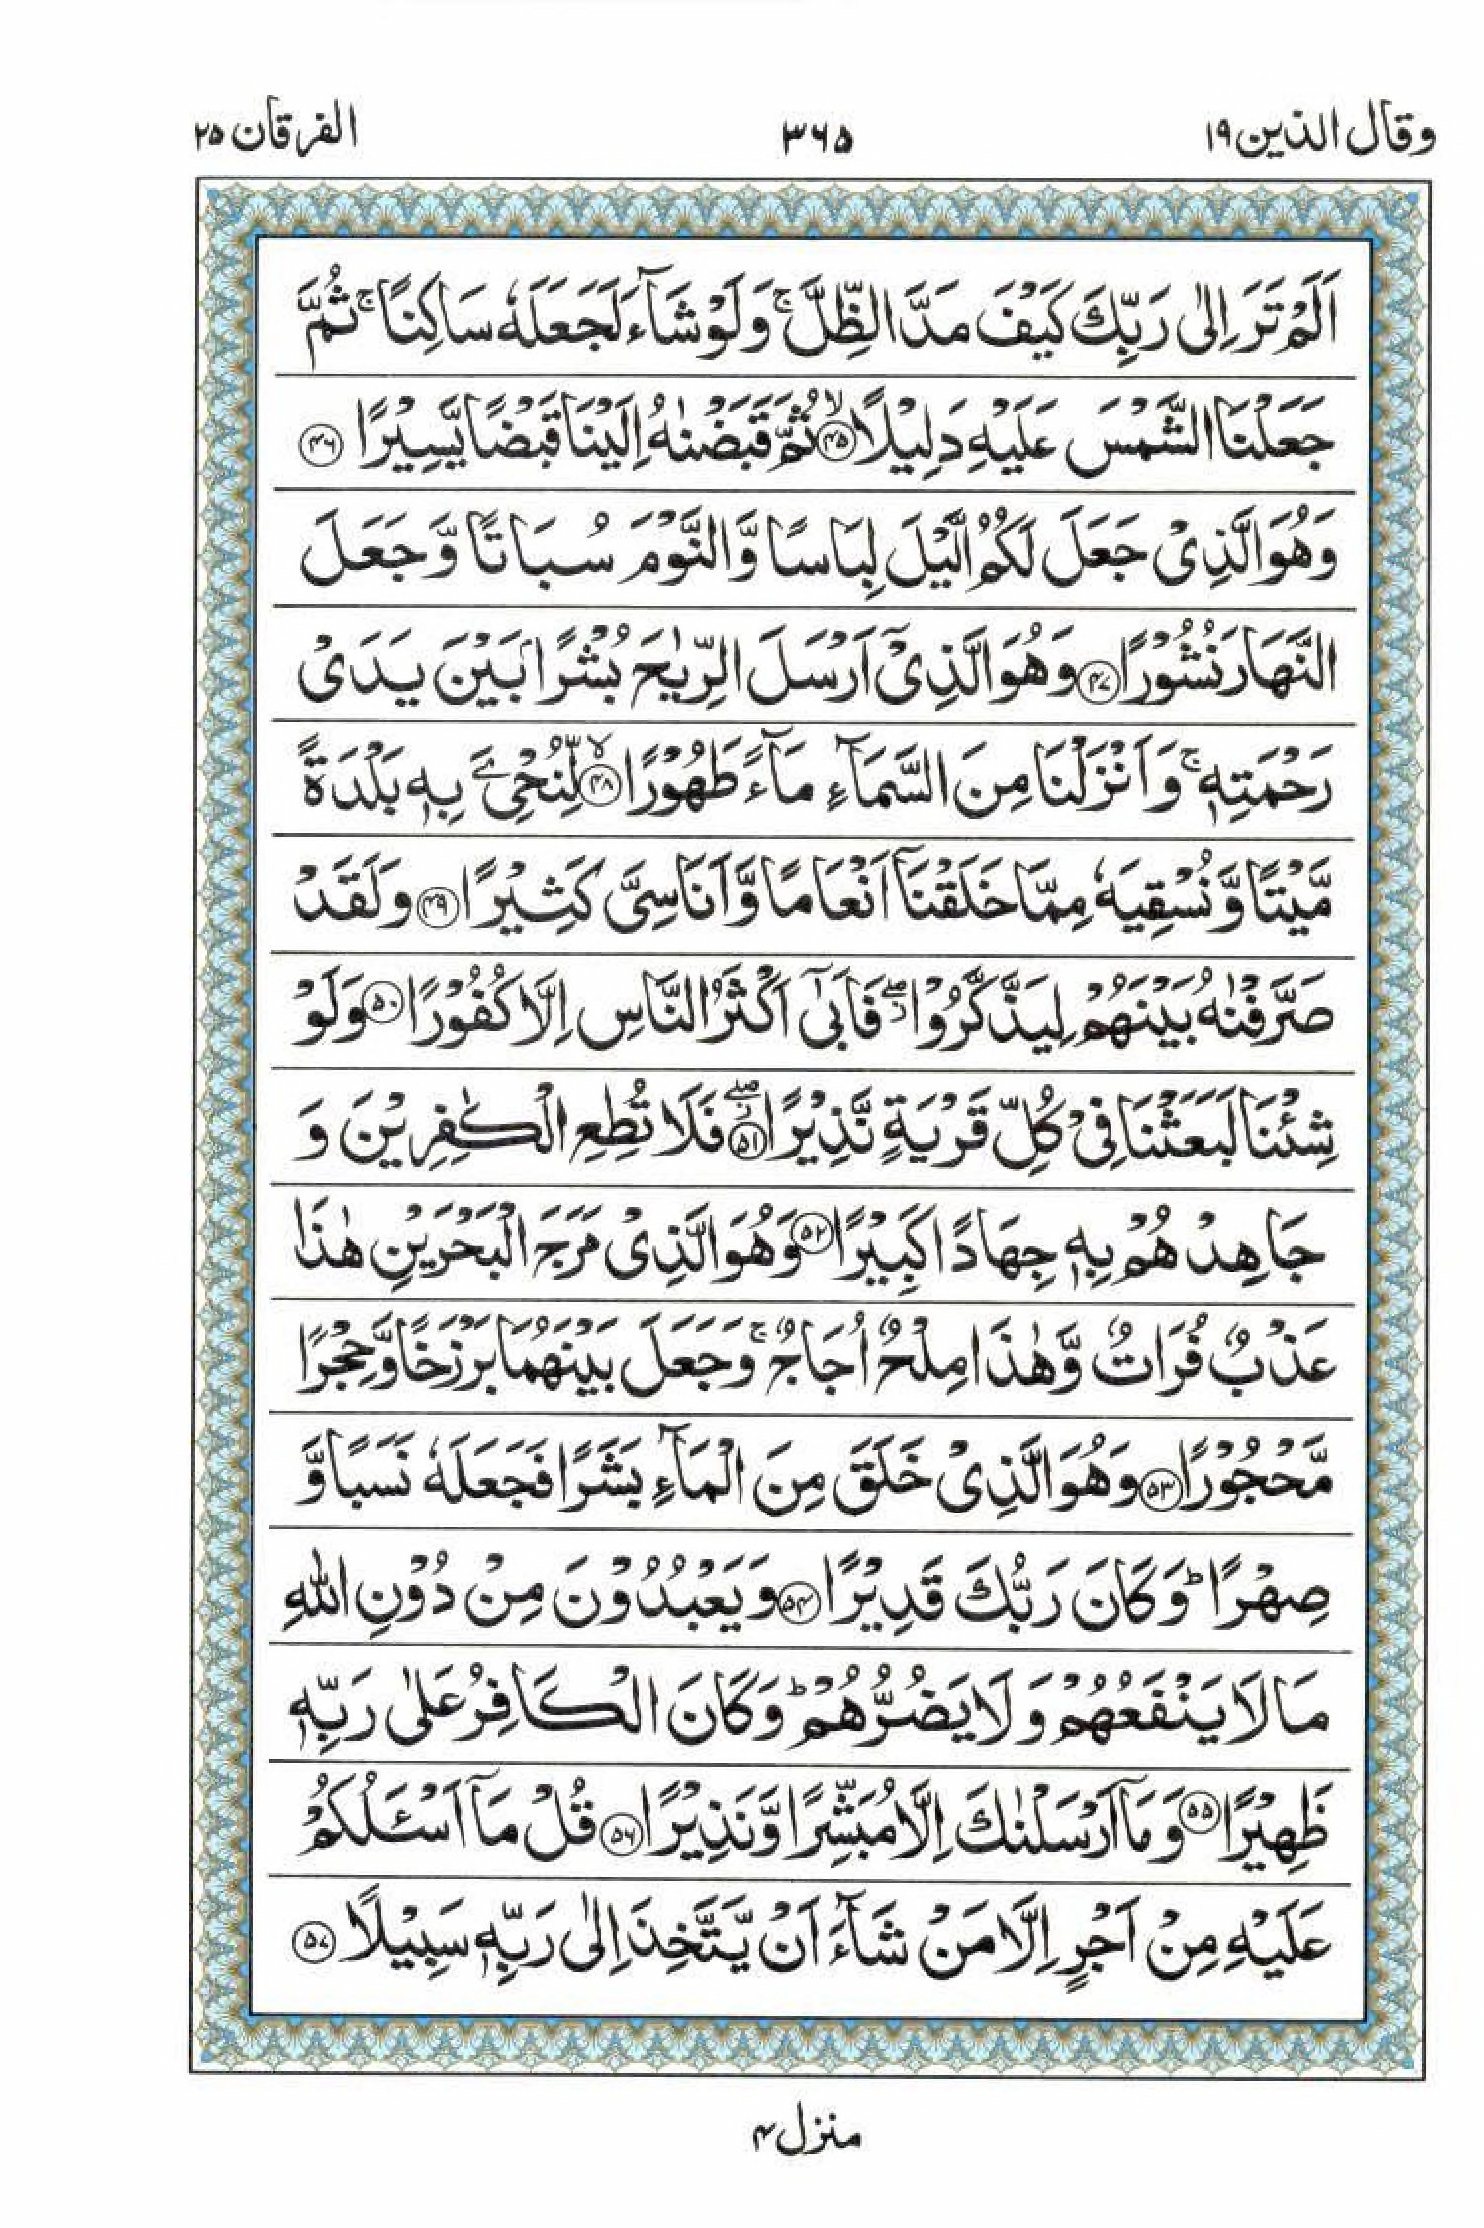 وقال الذين ١٩
٣٦٥
الفرقان ٢٥
اَلَمْ تَرَ اِلٰى رَبِّكَ كَيْفَ مَدَّ الظِّلَّ ۚ وَلَوْ شَآءَ لَجَعَلَهٗ سَاكِنًا ۚ ثُمَّ
جَعَلْنَا الشَّمْسَ عَلَيْهِ دَلِيْلًا ۙ﴿۴۵﴾ ثُمَّ قَبَضْنٰهُ اِلَيْنَا قَبْضًا يَّسِيْرًا ﴿۴۶﴾
وَهُوَ الَّذِىْ جَعَلَ لَكُمُ الَّيْلَ لِبَاسًا وَّالنَّوْمَ سُبَاتًا وَّجَعَلَ
النَّهَارَ نُشُوْرًا ﴿۴۷﴾ وَهُوَ الَّذِىْۤ اَرْسَلَ الرِّيٰحَ بُشْرًۢا بَيْنَ يَدَىْ
رَحْمَتِهٖ ۚ وَاَنْزَلْنَا مِنَ السَّمَآءِ مَآءً طَهُوْرًا ۙ﴿۴۸﴾ لِّنُحْیِۦَ بِهٖ بَلْدَةً
مَّيْتًا وَّنُسْقِيَهٗ مِمَّا خَلَقْنَاۤ اَنْعَامًا وَّاَنَاسِىَّ كَثِيْرًا ﴿۴۹﴾ وَلَقَدْ
صَرَّفْنٰهُ بَيْنَهُمْ لِيَذَّكَّرُوْا ۖ فَاَبٰٓى اَكْثَرُ النَّاسِ اِلَّا كُفُوْرًا ﴿۵۰﴾ وَلَوْ
شِئْنَا لَبَعَثْنَا فِىْ كُلِّ قَرْيَةٍ نَّذِيْرًا ۖ﴿۵۱﴾ فَلَا تُطِعِ الْكٰفِرِيْنَ وَ
جَاهِدْهُمْ بِهٖ جِهَادًا كَبِيْرًا ﴿۵۲﴾ وَهُوَ الَّذِىْ مَرَجَ الْبَحْرَيْنِ هٰذَا
عَذْبٌ فُرَاتٌ وَّهٰذَا مِلْحٌ اُجَاجٌ ۚ وَجَعَلَ بَيْنَهُمَا بَرْزَخًا وَّحِجْرًا
مَّحْجُوْرًا ﴿۵۳﴾ وَهُوَ الَّذِىْ خَلَقَ مِنَ الْمَآءِ بَشَرًا فَجَعَلَهٗ نَسَبًا وَّ
صِهْرًا ؕ وَكَانَ رَبُّكَ قَدِيْرًا ﴿۵۴﴾ وَيَعْبُدُوْنَ مِنْ دُوْنِ اللّٰهِ
مَا لَا يَنْفَعُهُمْ وَلَا يَضُرُّهُمْ ؕ وَكَانَ الْكَافِرُ عَلٰى رَبِّهٖ
ظَهِيْرًا ﴿۵۵﴾ وَمَاۤ اَرْسَلْنٰكَ اِلَّا مُبَشِّرًا وَّنَذِيْرًا ﴿۵۶﴾ قُلْ مَاۤ اَسْـَٔلُكُمْ
عَلَيْهِ مِنْ اَجْرٍ اِلَّا مَنْ شَآءَ اَنْ يَّتَّخِذَ اِلٰى رَبِّهٖ سَبِيْلًا ﴿۵۷﴾
منزل ۴